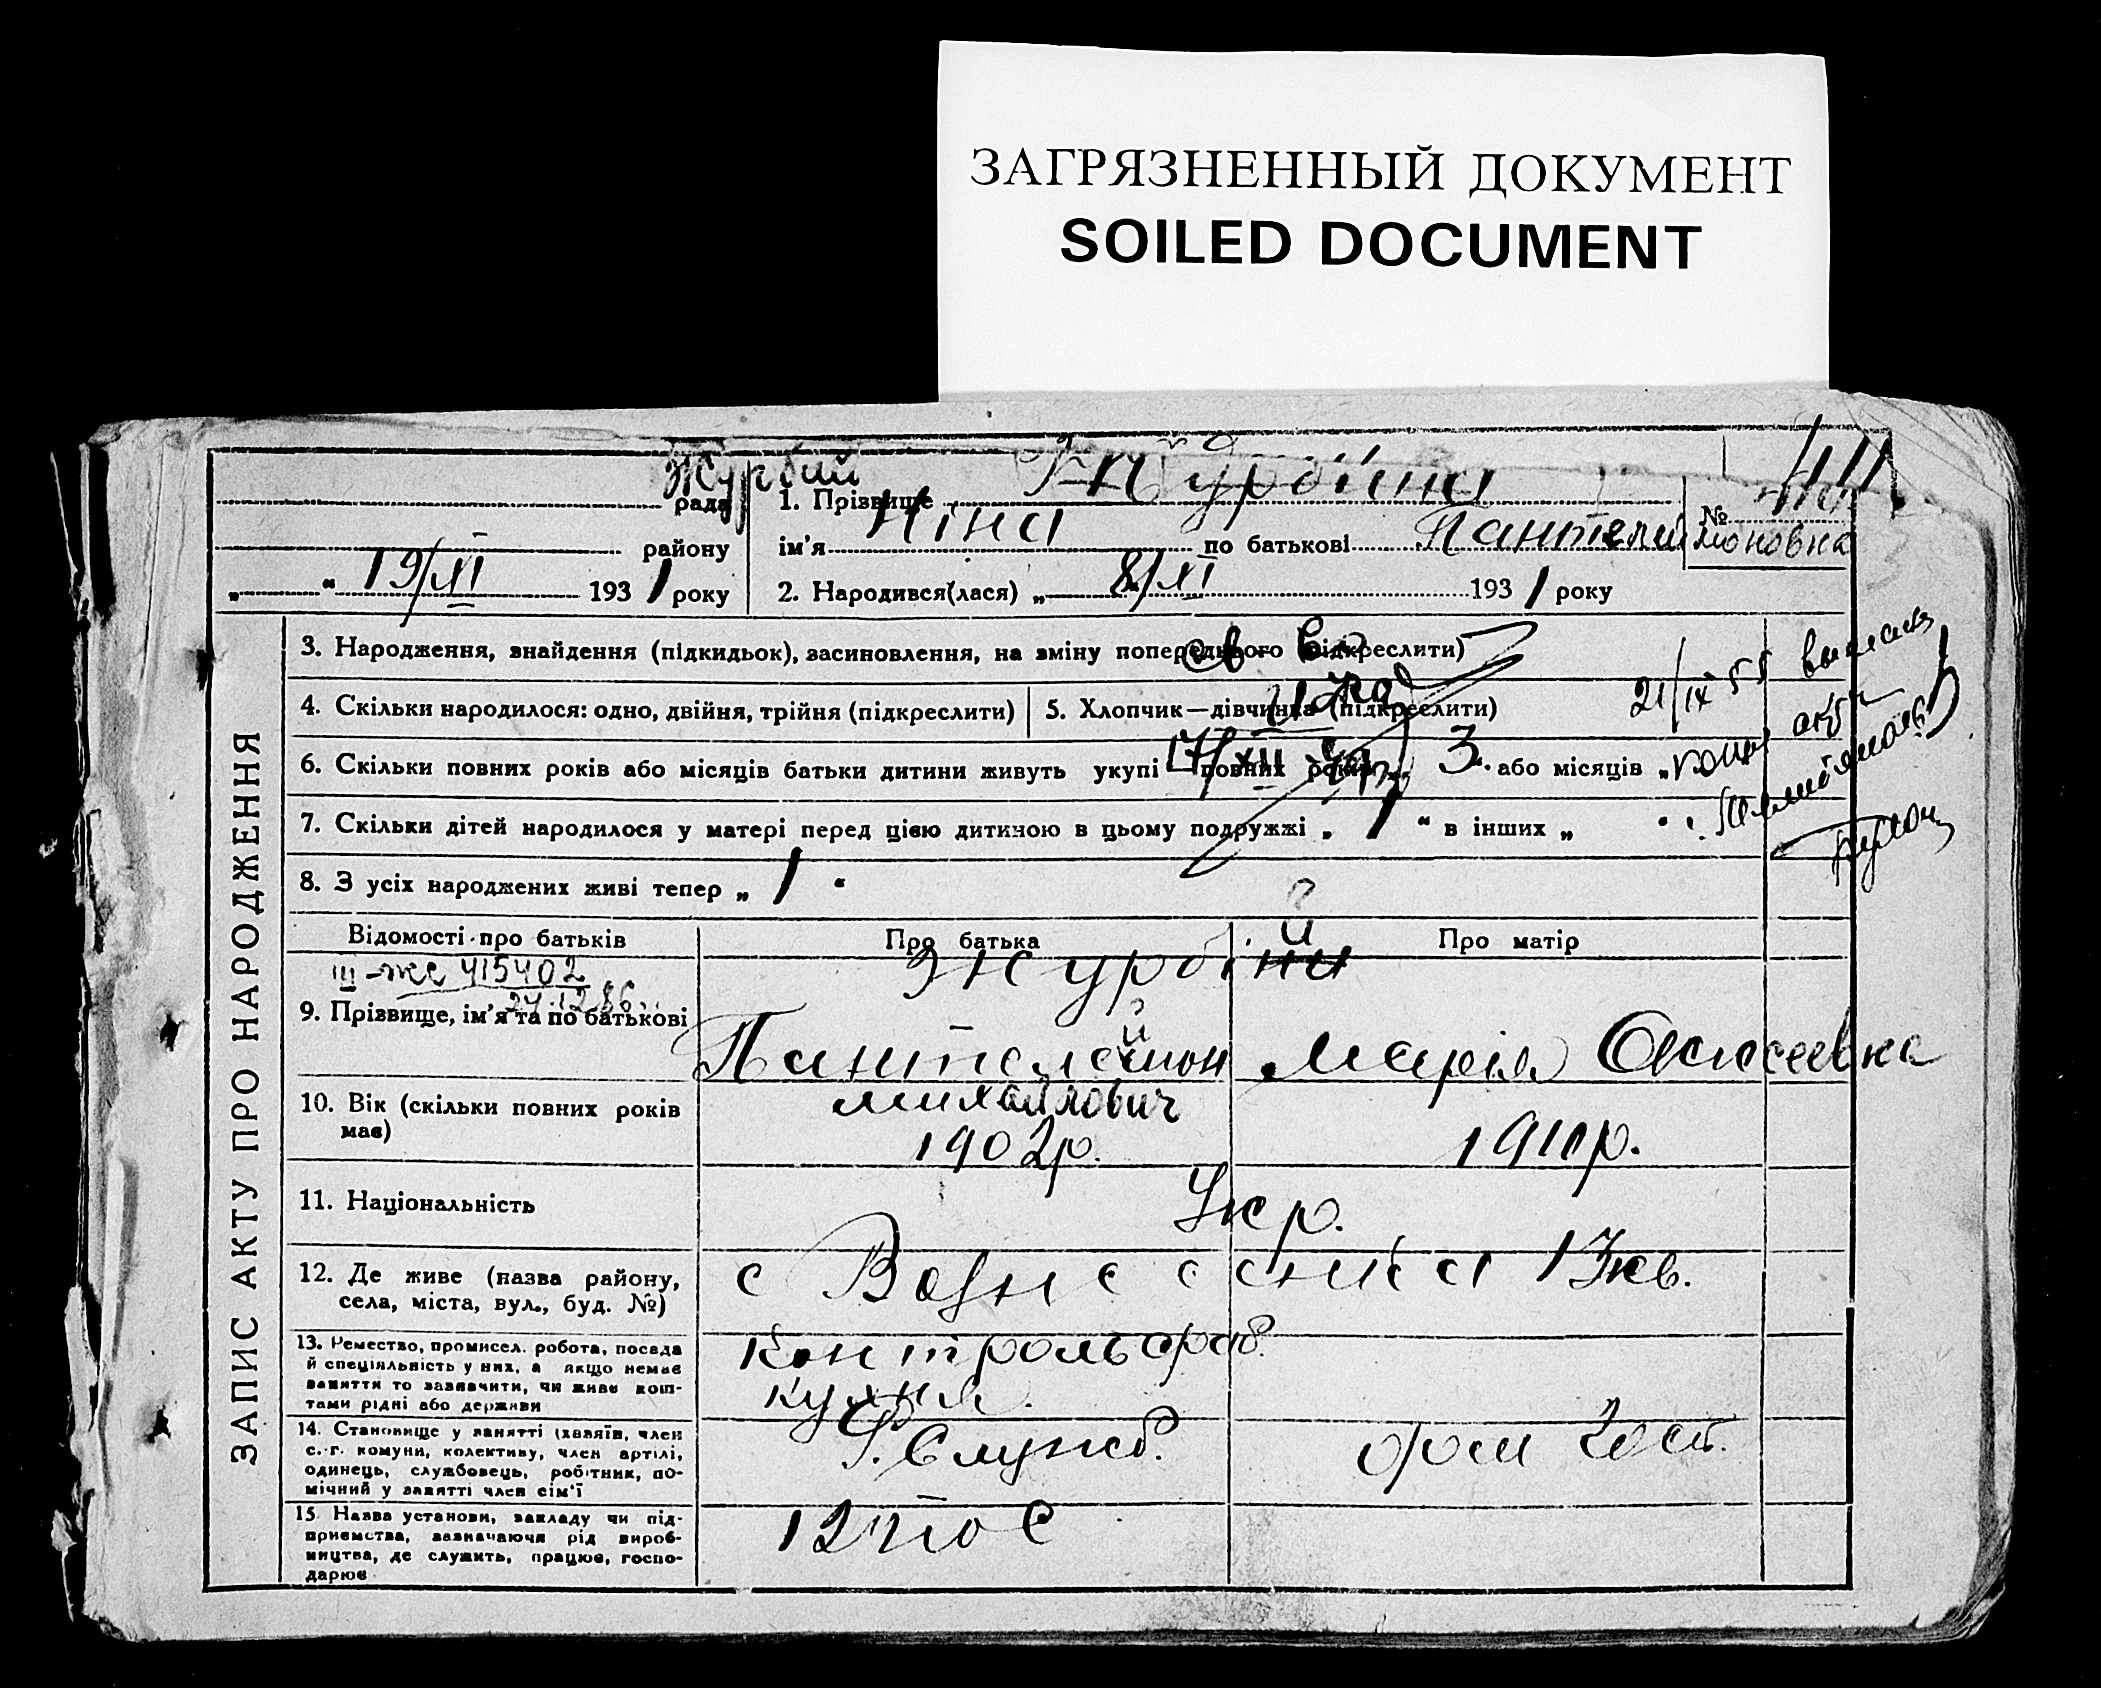 ЗАГРЯЗНЕННЫЙ ДОКУМЕНТ
SOILED DOCUMENT
Журбий
рада
району
19/XI 1931 року
1. Прізвище Журбіна
ім'я Ніна по батькові Пантелиймоновна
№
2. Народився(лася) „ 8/XI 1931 року
ЗАПИС АКТУ ПРО НАРОДЖЕННЯ
3. Народження, знайдення (підкидьок), засиновлення, на зміну попереднього (підкреслити)
4. Скільки народилося: одно, двійня, трійня (підкреслити)
5. Хлопчик—дівчинка (підкреслити)
6. Скільки повних років або місяців батьки дитини живуть укупі повних років 3. або місяців „
7. Скільки дітей народилося у матері перед цією дитиною в цьому подружжі „ 1 “ в інших „
8. З усіх народжених живі тепер „ 1 “
21/IX 55
Відомості про батьків
Про батька
Про матір
III-жс 415402
27.12.86
9. Прізвище, ім'я та по батькові
Журбіни
й
Пантелеймон
Михайлович
Марія
10. Вік (скільки повних років має)
1902р.
1911р.
11. Національність
Укр.
12. Де живе (назва району, села, міста, вул., буд. №)
с Вознесенка 13кв.
13. Ремество, промисел. робота, посада
й спеціяльність у них, а якщо немає
заняття то зазначити, чи живе кош-
тами рідні або держави
Контроль фаб.
кухня.
14. Становище у занятті (хазяїн, член
с.-г. комуни, колективу, член артілі,
одинець, службовець, робітник, по-
мічний у занятті член сім'ї
Служб.
дом хост.
15. Назва установи, закладу чи під-
приємства, зазначаючи рід вироб-
ництва, де служить, працює, госпо-
дарює